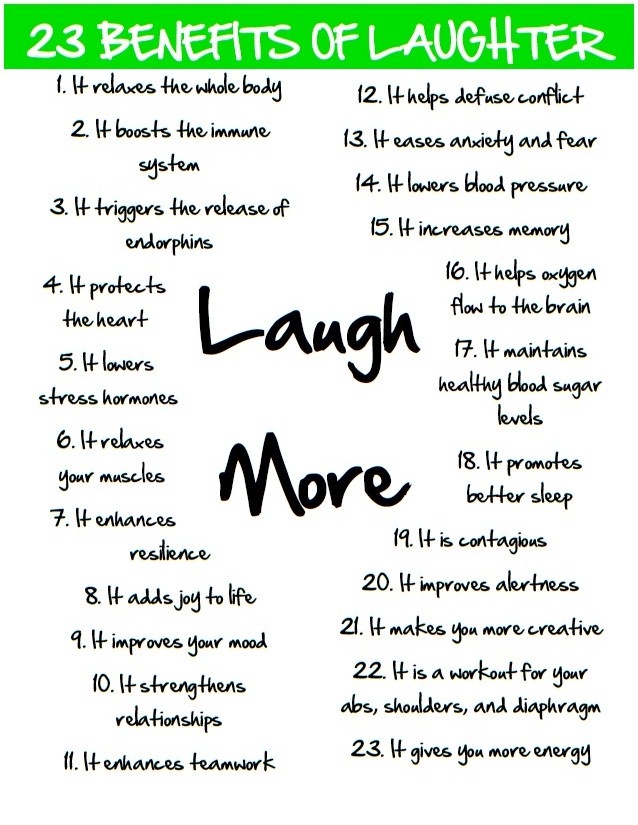 23 BENEFITS OF LAUGHTER
1. It relaxes the whole body
2. It boosts the immune
system
3. It triggers the release of
endorphins
4. It protects
the heart
5. It lowers
stress hormones
6. It relaxes
your muscles
7. It enhances
resilience
8. It adds joy to life
9. It improves your mood
10. It strengthens
relationships
11. It enhances teamwork
Laugh
More
12. It helps defuse conflict
13. It eases anxiety and fear
14. It lowers blood pressure
15. It increases memory
16. It helps oxygen
flow to the brain
17. It maintains
healthy blood sugar
levels
18. It promotes
better sleep
19. It is contagious
20. It improves alertness
21. It makes you more creative
22. It is a workout for your
abs, shoulders, and diaphragm
23. It gives you more energy